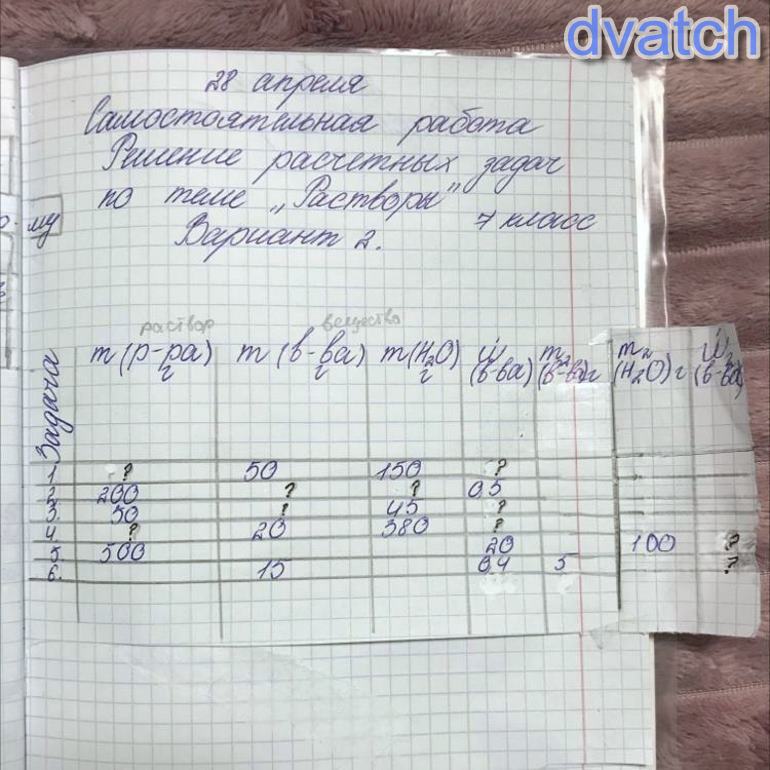 dvatch
28 апреля
Самостоятельная работа
Решение расчетных задач
по теме „Растворы"
7 класс
Вариант 2.
му
раствор вещество
Задача m (р-ра) г m (в-ва) г m(H₂O) г W (в-ва) m₂ (в-ва) г m₂ (H₂O) г W₂ (в-ва)
1. ? 50 150 ?
2. 200 ? ? 05
3. 50 ? 45 ?
4. ? 20 380 ?
5. 500 20 100 ?
6. 15 0.4 5 ?